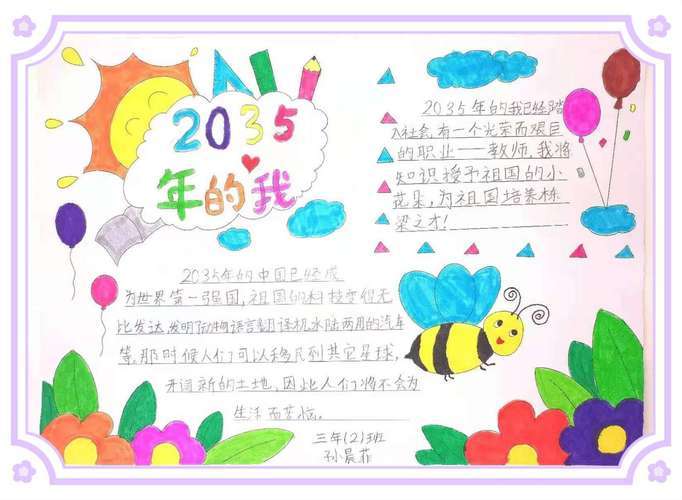 2035
年的我
2035年的我已经踏
入社会,有一个光荣而艰巨
的职业——教师,我将
知识授予祖国的小
花朵,为祖国培养栋
梁之才!
2035年的中国已经成
为世界第一强国,祖国的科技变得无
比发达发明了动物语言翻译机水陆两用的汽车
等,那时候人们可以移民到其它星球,
开阔新的土地,因此人们将不会为
生活而
三年(2)班
孙晨菲